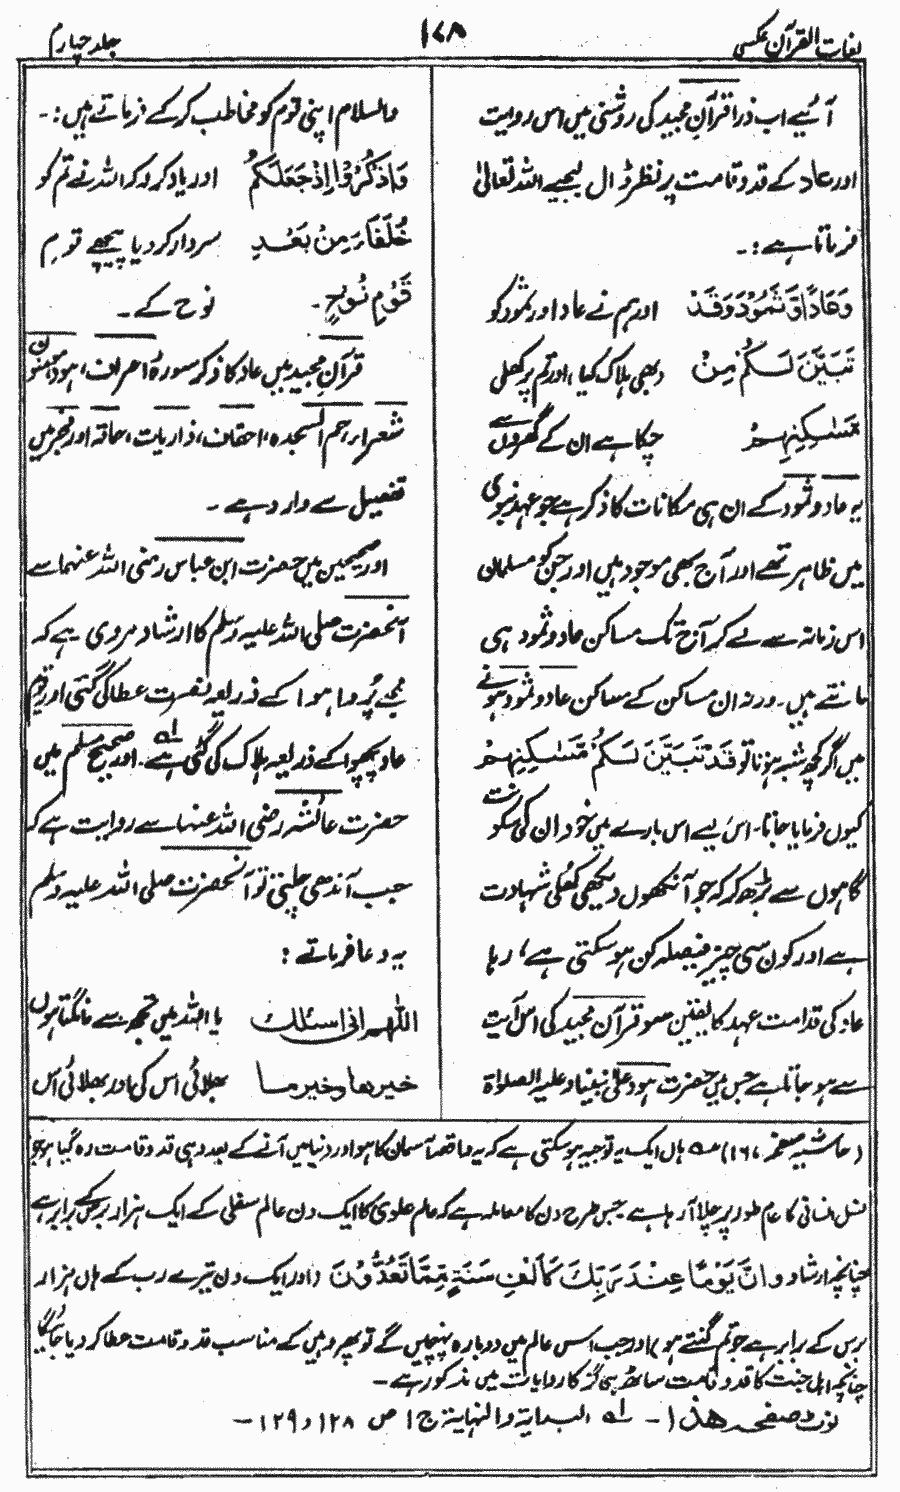 لغات القرآن عکسی
۱۶۸
جلد چہارم
آئیے اب ذرا قرآنِ مجید کی روشنی میں اس روایت
اور عاد کے قد و قامت پر نظر ڈال لیجیے اللہ تعالیٰ
فرماتا ہے :۔
وَعَادًا وَّثَمُوْدَ وَقَدْ اور ہم نے عاد اور ثمود کو
تَبَيَّنَ لَكُمْ مِنْ بھی ہلاک کیا، اور تم پر کھلی
مَّسٰكِنِهِمْ چکا ہے ان کے گھروں سے
یہ عاد و ثمود کے ان ہی مکانات کا ذکر ہے جو عہد نبوی
میں ظاہر تھے اور آج بھی موجود ہیں اور جن کو مسلمان
اس زمانہ سے لے کر آج تک مساکن عاد و ثمود ہی
مانتے ہیں۔ ورنہ ان مساکن کے مساکن عاد و ثمود ہونے
میں اگر کچھ شبہ ہوتا تو قَدْ تَبَيَّنَ لَكُمْ مِّنْ مَّسٰكِنِهِمْ
کیوں فرمایا جاتا۔ اس لیے اس بارے میں خود ان کی سکونت
گاہوں سے بڑھ کر کہ جو آنکھوں دیکھی کھلی شہادت
ہے اور کون سی چیز فیصلہ کن ہو سکتی ہے، رہا
عاد کی قدامت عہد کا یقین سو قرآن مجید کی اس آیت
سے ہو جاتا ہے جس میں حضرت ہود علیٰ نبینا و علیہ الصلوٰۃ
والسلام اپنی قوم کو مخاطب کر کے فرماتے ہیں :۔
وَاذْكُرُوْا اِذْ جَعَلَكُمْ اور یاد کرو کہ اللہ نے تم کو
خُلَفَآءَ مِنْ بَعْدِ سردار کر دیا پیچھے قوم
قَوْمِ نُوْحٍ۔ نوح کے۔
قرآنِ مجید میں عاد کا ذکر سورۂ اعراف، ہود، مومنون
شعراء، حم السجدہ، احقاف، ذاریات، حاقہ اور فجر میں
تفصیل سے وارد ہے۔
اور صحیحین میں حضرت ابن عباس رضی اللہ عنہما سے
آنحضرت صلی اللہ علیہ وسلم کا ارشاد مروی ہے کہ
مجھے پُروا ہوا کے ذریعہ نصرت عطا کی گئی اور قوم
عاد پچھوا کے ذریعہ ہلاک کی گئی ہے لہ۔ اور صحیح مسلم میں
حضرت عائشہ رضی اللہ عنہا سے روایت ہے کہ
جب آندھی چلتی تو آنحضرت صلی اللہ علیہ وسلم
یہ دعا فرماتے :
اللهم انى اسئلك یا اللہ میں تجھ سے مانگتا ہوں
خيرها وخير ما بھلائی اس کی اور بھلائی اُس
(حاشیہ صفحہ ۱۶۷) ہاں ایک یہ توجیہ ہو سکتی ہے کہ یہ واقعہ آسمان کا ہو اور دنیا میں آنے کے بعد وہی قد و قامت رہ گیا ہو جو
نسل انسانی کا عام طور پر چلا آ رہا ہے جس طرح دن کا معاملہ ہے کہ عالم علوی کا ایک دن عالم سفلی کے ایک ہزار برس کے برابر ہے
چنانچہ ارشاد و اِنَّ يَوْمًا عِنْدَ رَبِّكَ كَاَلْفِ سَنَةٍ مِّمَّا تَعُدُّوْنَ (اور ایک دن تیرے رب کے ہاں ہزار
برس کے برابر ہے جو تم گنتے ہو) اور جب اس عالم میں دوبارہ پہنچیں گے تو پھر وہیں کے مناسب قد و قامت عطا کر دیا جائیگا
چنانچہ اہل جنت کا قد و قامت ساٹھ ہی گز کا روایات میں مذکور ہے۔
نوٹ صفحہ ھذا ۱۔ لہ البدایۃ والنہایۃ ج ۱ ص ۱۲۸ و ۱۲۹۔